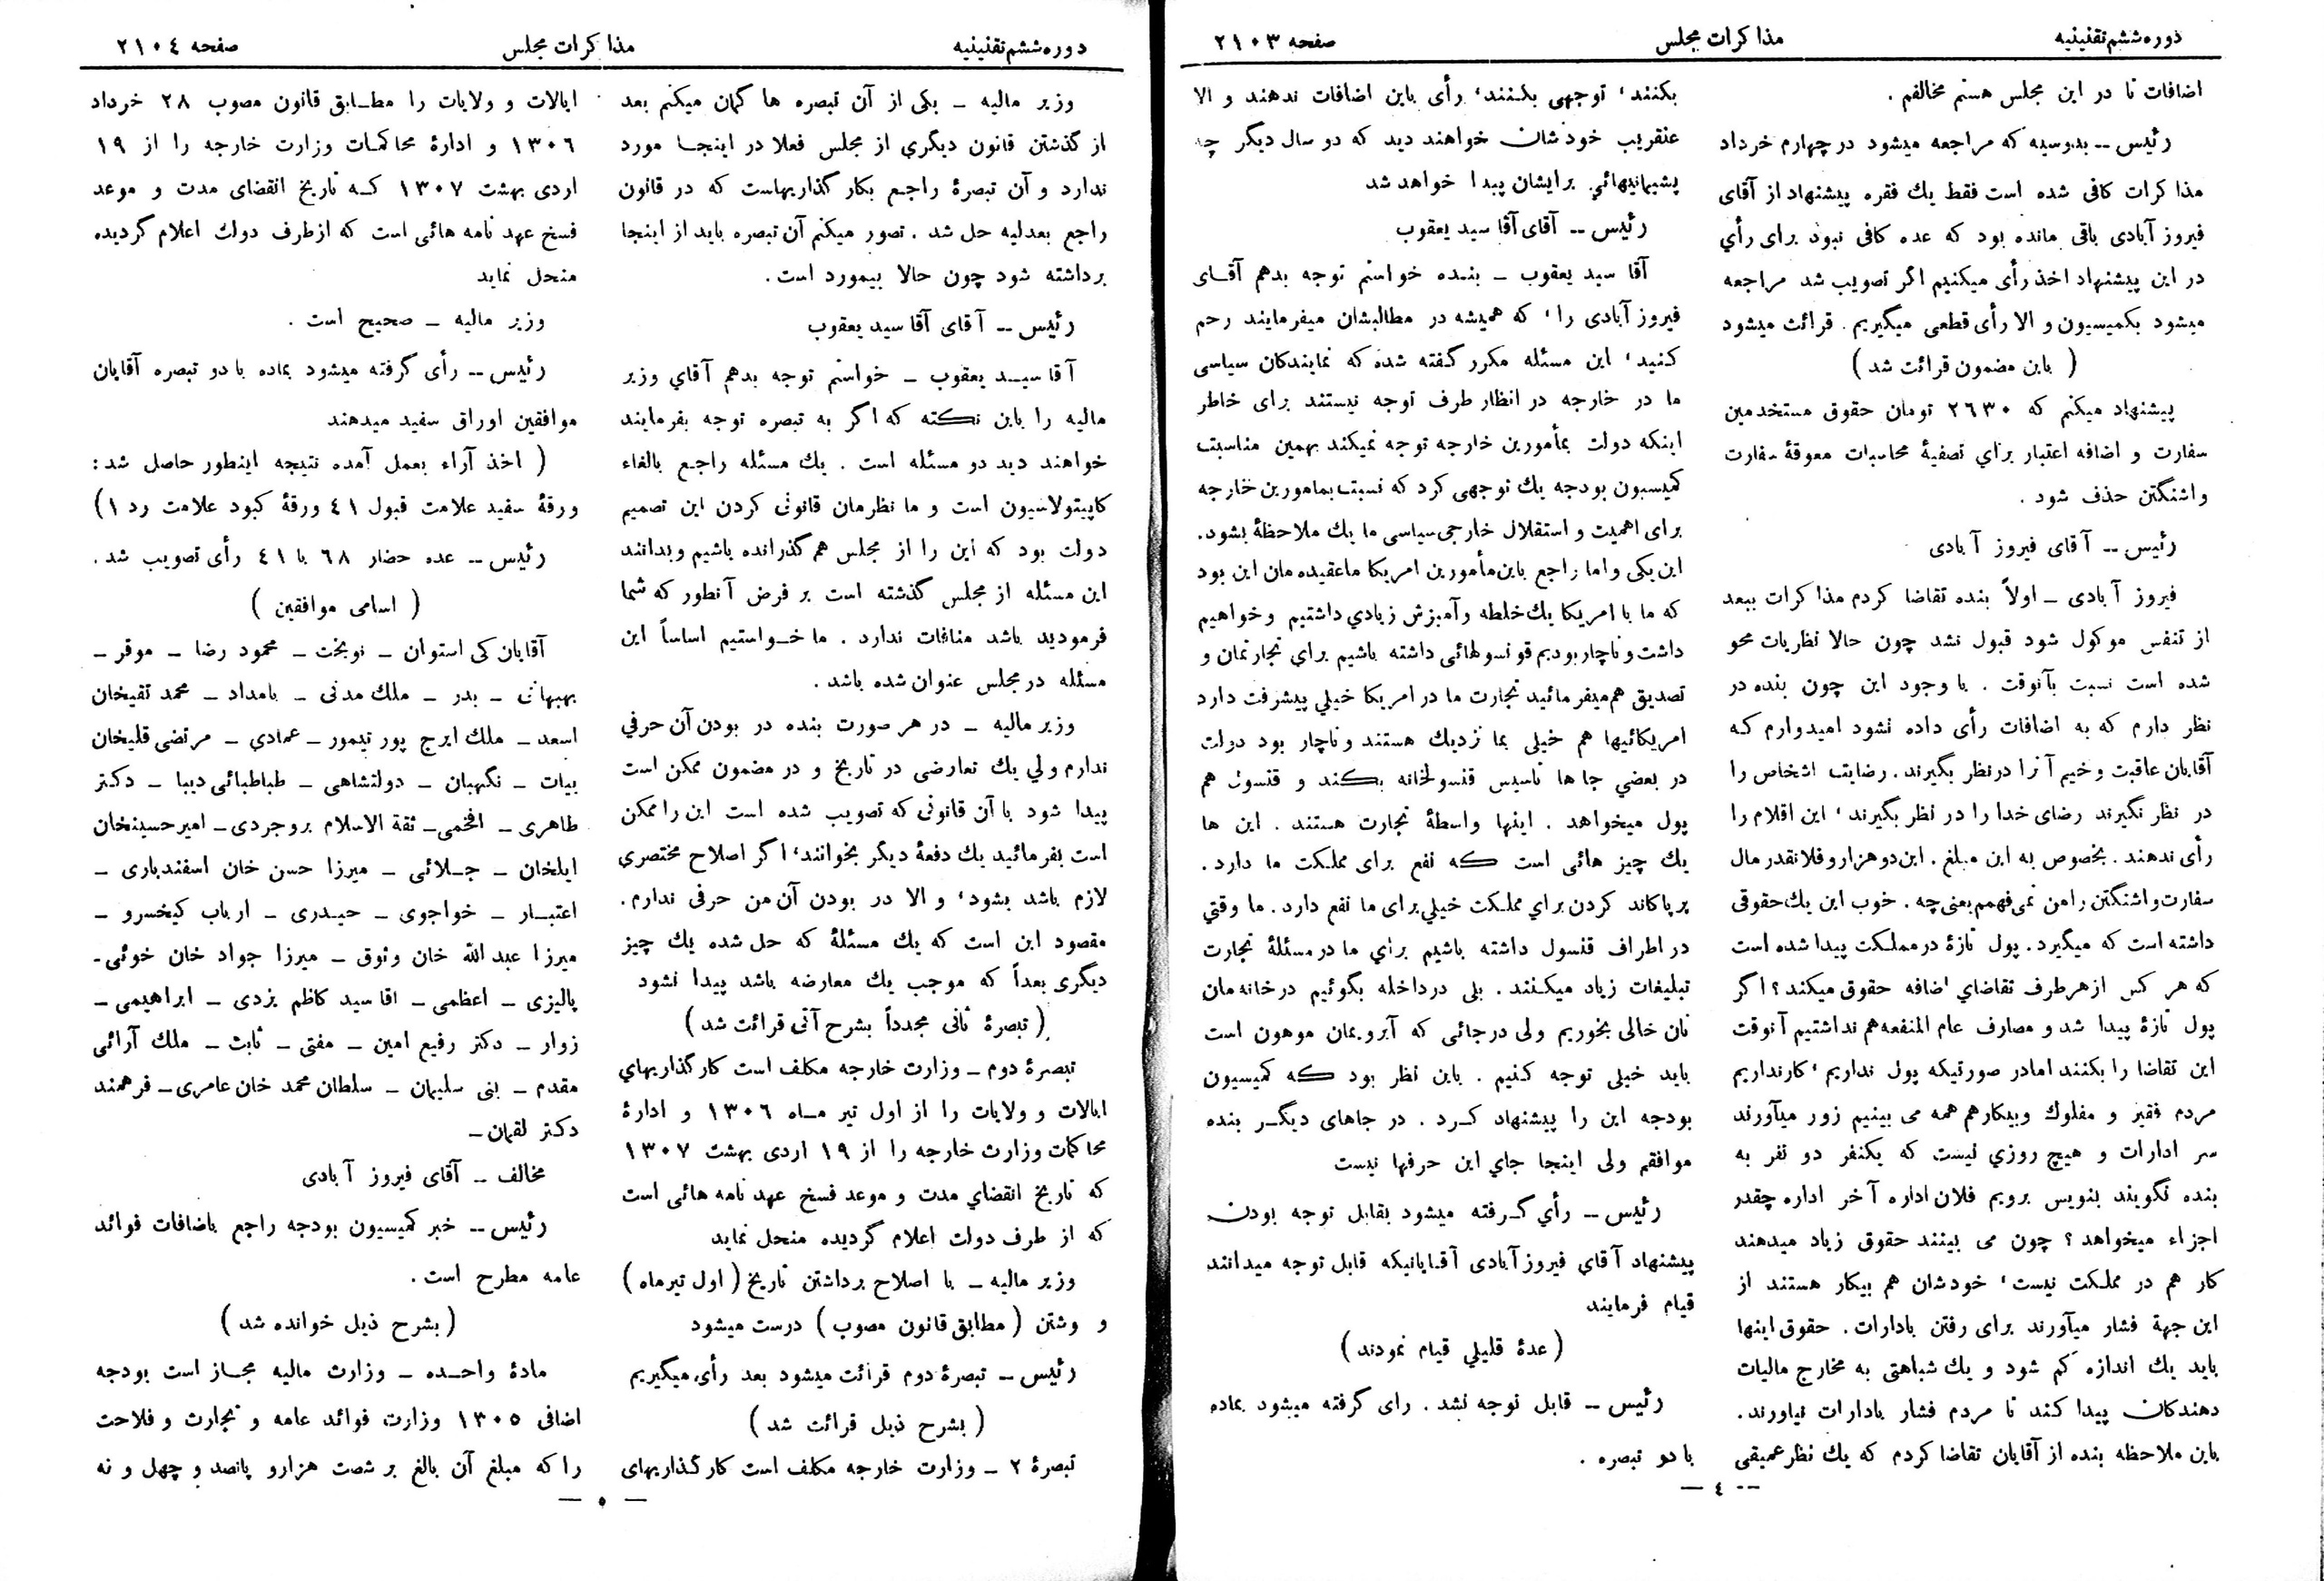 دوره ششم تقنینیه
مذاکرات مجلس
صفحه ۲۱۰۳
اضافات تا در این مجلس هستم مخالفم .
رئیس -- بدوسیه که مراجعه میشود در چهارم خرداد
مذاکرات کافی شده است فقط یك فقره پیشنهاد از آقای
فیروز آبادی باقی مانده بود که عده کافی نبود برای رأی
در این پیشنهاد اخذ رأی میکنیم اگر تصویب شد مراجعه
میشود بکمیسیون و الا رأی قطعی میگیریم . قرائت میشود
( باین مضمون قرائت شد )
پیشنهاد میکنم که ۲٦۳۰ تومان حقوق مستخدمین
سفارت و اضافه اعتبار برای تصفیهٔ محاسبات معوقهٔ سفارت
واشنگتن حذف شود .
رئیس -- آقای فیروز آبادی
فیروز آبادی ـ اولاً بنده تقاضا کردم مذاکرات ببعد
از تنفس موکول شود قبول نشد چون حالا نظریات محو
شده است نسبت بآنوقت . با وجود این چون بنده در
نظر دارم که به اضافات رأی داده نشود امیدوارم که
آقایان عاقبت وخیم آنرا درنظر بگیرند . رضایت اشخاص را
در نظر نگیرند رضای خدا را در نظر بگیرند ، این اقلام را
رأی ندهند . بخصوص به این مبلغ . این دو هزار و فلانقدر مال
سفارت واشنگتن را من نمی فهمم یعنی چه . خوب این یك حقوقی
داشته است که میگیرد . پول تازهٔ در مملکت پیدا شده است
که هر کس از هر طرف تقاضای اضافه حقوق میکند ؟ اگر
پول تازهٔ پیدا شد و مصارف عام المنفعه هم نداشتیم آنوقت
این تقاضا را بکنند اما در صورتیکه پول نداریم ، کار نداریم
مردم فقیر و مفلوك وبیکار هم همه می بینیم زور میآورند
سر ادارات و هیچ روزی نیست که یکنفر دو نفر به
بنده نگویند بنویس برویم فلان اداره آخر اداره چقدر
اجزاء میخواهد ؟ چون می بینند حقوق زیاد میدهند
کار هم در مملکت نیست ، خودشان هم بیکار هستند از
این جهة فشار میآورند برای رفتن بادارات . حقوق اینها
باید یك اندازه کم شود و یك شباهتی به مخارج مالیات
دهندکان پیدا کند تا مردم فشار بادارات نیاورند .
باین ملاحظه بنده از آقایان تقاضا کردم که یك نظر عمیقی
بکنند ، توجهی بکنند ، رأی باین اضافات ندهند و الا
عنقریب خودشان خواهند دید که دو سال دیگر چه
پشیمانیهائی برایشان پیدا خواهد شد
رئیس -- آقای آقا سید یعقوب
آقا سید یعقوب ـ بنده خواستم توجه بدهم آقای
فیروز آبادی را ، که همیشه در مطالبشان میفرمایند رحم
کنید ، این مسئله مکرر گفته شده که نمایندکان سیاسی
ما در خارجه در انظار طرف توجه نیستند برای خاطر
اینکه دولت بمأمورین خارجه توجه نمیکند بهمین مناسبت
کمیسیون بودجه یك توجهی کرد که نسبت بمامورین خارجه
برای اهمیت و استقلال خارجی سیاسی ما یك ملاحظهٔ بشود .
این یکی و اما راجع باین مأمورین امریکا ما عقیده مان این بود
که ما با امریکا یك خلطه و آمیزش زیادی داشتیم و خواهیم
داشت و ناچار بودیم قونسولهائی داشته باشیم برای تجارتمان و
تصدیق هم میفرمائید تجارت ما در امریکا خیلی پیشرفت دارد
امریکائیها هم خیلی بما نزدیك هستند و ناچار بود دولت
در بعضی جاها تاسیس قنسولخانه بکند و قنسول هم
پول میخواهد . اینها واسطهٔ تجارت هستند . این ها
یك چیز هائی است که نفع برای مملکت ما دارد .
پرپاکاند کردن برای مملکت خیلی برای ما نفع دارد . ما وقتی
در اطراف قنسول داشته باشیم برای ما در مسئلهٔ تجارت
تبلیغات زیاد میکنند . بلی در داخله بگوئیم در خانه مان
نان خالی بخوریم ولی در جائی که آبرویمان موهون است
باید خیلی توجه کنیم . باین نظر بود که کمیسیون
بودجه این را پیشنهاد کرد . در جاهای دیگر بنده
موافقم ولی اینجا جای این حرفها نیست
رئیس -- رأی گرفته میشود بقابل توجه بودن
پیشنهاد آقای فیروز آبادی آقایانیکه قابل توجه میدانند
قیام فرمایند
( عدهٔ قلیلی قیام نمودند )
رئیس -- قابل توجه نشد . رای گرفته میشود بماده
با دو تبصره .
— ٤ —
دوره ششم تقنینیه
مذاکرات مجلس
صفحه ۲۱۰٤
وزیر مالیه ـ یکی از آن تبصره ها گمان میکنم بعد
از گذشتن قانون دیگری از مجلس فعلا در اینجا مورد
ندارد و آن تبصرهٔ راجع بکار گذاریهاست که در قانون
راجع بعدلیه حل شد . تصور میکنم آن تبصره باید از اینجا
برداشته شود چون حالا بیمورد است .
رئیس -- آقای آقا سید یعقوب
آقا سید یعقوب ـ خواستم توجه بدهم آقای وزیر
مالیه را باین نکته که اگر به تبصره توجه بفرمایند
خواهند دید دو مسئله است . یك مسئله راجع بالغاء
کاپیتولاسیون است و ما نظرمان قانونی کردن این تصمیم
دولت بود که این را از مجلس هم گذرانده باشیم و بدانند
این مسئله از مجلس گذشته است بر فرض آنطور که شما
فرمودید باشد منافات ندارد . ما خواستیم اساساً این
مسئله در مجلس عنوان شده باشد .
وزیر مالیه ـ در هر صورت بنده در بودن آن حرفی
ندارم ولی یك تعارضی در تاریخ و در مضمون ممکن است
پیدا شود با آن قانونی که تصویب شده است این را ممکن
است بفرمائید یك دفعهٔ دیگر بخوانند ، اگر اصلاح مختصری
لازم باشد بشود ، و الا در بودن آن من حرفی ندارم .
مقصود این است که یك مسئلهٔ که حل شده یك چیز
دیگری بعداً که موجب یك معارضه باشد پیدا نشود
( تبصرهٔ ثانی مجدداً بشرح آتی قرائت شد )
تبصرهٔ دوم ـ وزارت خارجه مکلف است کار گذاریهای
ایالات و ولایات را از اول تیر ماه ۱۳۰٦ و ادارهٔ
محاکمات وزارت خارجه را از ۱۹ اردی بهشت ۱۳۰۷
که تاریخ انقضای مدت و موعد فسخ عهد نامه هائی است
که از طرف دولت اعلام گردیده منحل نماید
وزیر مالیه ـ با اصلاح برداشتن تاریخ ( اول تیرماه )
و وشتن ( مطابق قانون مصوب ) درست میشود
رئیس -- تبصرهٔ دوم قرائت میشود بعد رأی میگیریم
( بشرح ذیل قرائت شد )
تبصرهٔ ۲ ـ وزارت خارجه مکلف است کار گذاریهای
ایالات و ولایات را مطابق قانون مصوب ۲۸ خرداد
۱۳۰٦ و ادارهٔ محاکمات وزارت خارجه را از ۱۹
اردی بهشت ۱۳۰۷ که تاریخ انقضای مدت و موعد
فسخ عهد نامه هائی است که از طرف دولت اعلام گردیده
منحل نماید
وزیر مالیه ـ صحیح است .
رئیس -- رأی گرفته میشود بماده با دو تبصره آقایان
موافقین اوراق سفید میدهند
( اخذ آراء بعمل آمده نتیجه اینطور حاصل شد :
ورقهٔ سفید علامت قبول ٤۱ ورقهٔ کبود علامت رد ۱ )
رئیس -- عده حضار ٦۸ با ٤۱ رأی تصویب شد .
( اسامی موافقین )
آقایان کی استوان ـ نوبخت ـ محمود رضا ـ موقر ـ
بهبهانی ـ بدر ـ ملك مدنی ـ بامداد ـ محمد تقیخان
اسعد ـ ملك ایرج پور تیمور ـ عمادی ـ مرتضی قلیخان
بیات ـ نگهبان ـ دولتشاهی ـ طباطبائی دیبا ـ دکتر
طاهری ـ افخمی ـ ثقة الاسلام بروجردی ـ امیر حسینخان
ایلخان ـ جلائی ـ میرزا حسن خان اسفندیاری ـ
اعتبار ـ خواجوی ـ حیدری ـ ارباب کیخسرو ـ
میرزا عبدالله خان وثوق ـ میرزا جواد خان خوئی ـ
پالیزی ـ اعظمی ـ اقا سید کاظم یزدی ـ ابراهیمی ـ
زوار ـ دکتر رفیع امین ـ مفتی ـ ثابت ـ ملك آرائی
مقدم ـ بنی سلیمان ـ سلطان محمد خان عامری ـ فرهمند
دکتر لقمان ـ
مخالف -- آقای فیروز آبادی
رئیس -- خبر کمیسیون بودجه راجع باضافات فوائد
عامه مطرح است .
( بشرح ذیل خوانده شد )
مادهٔ واحده ـ وزارت مالیه مجاز است بودجه
اضافی ۱۳۰۵ وزارت فوائد عامه و تجارت و فلاحت
را که مبلغ آن بالغ بر شصت هزار و پانصد و چهل و نه
— ۵ —